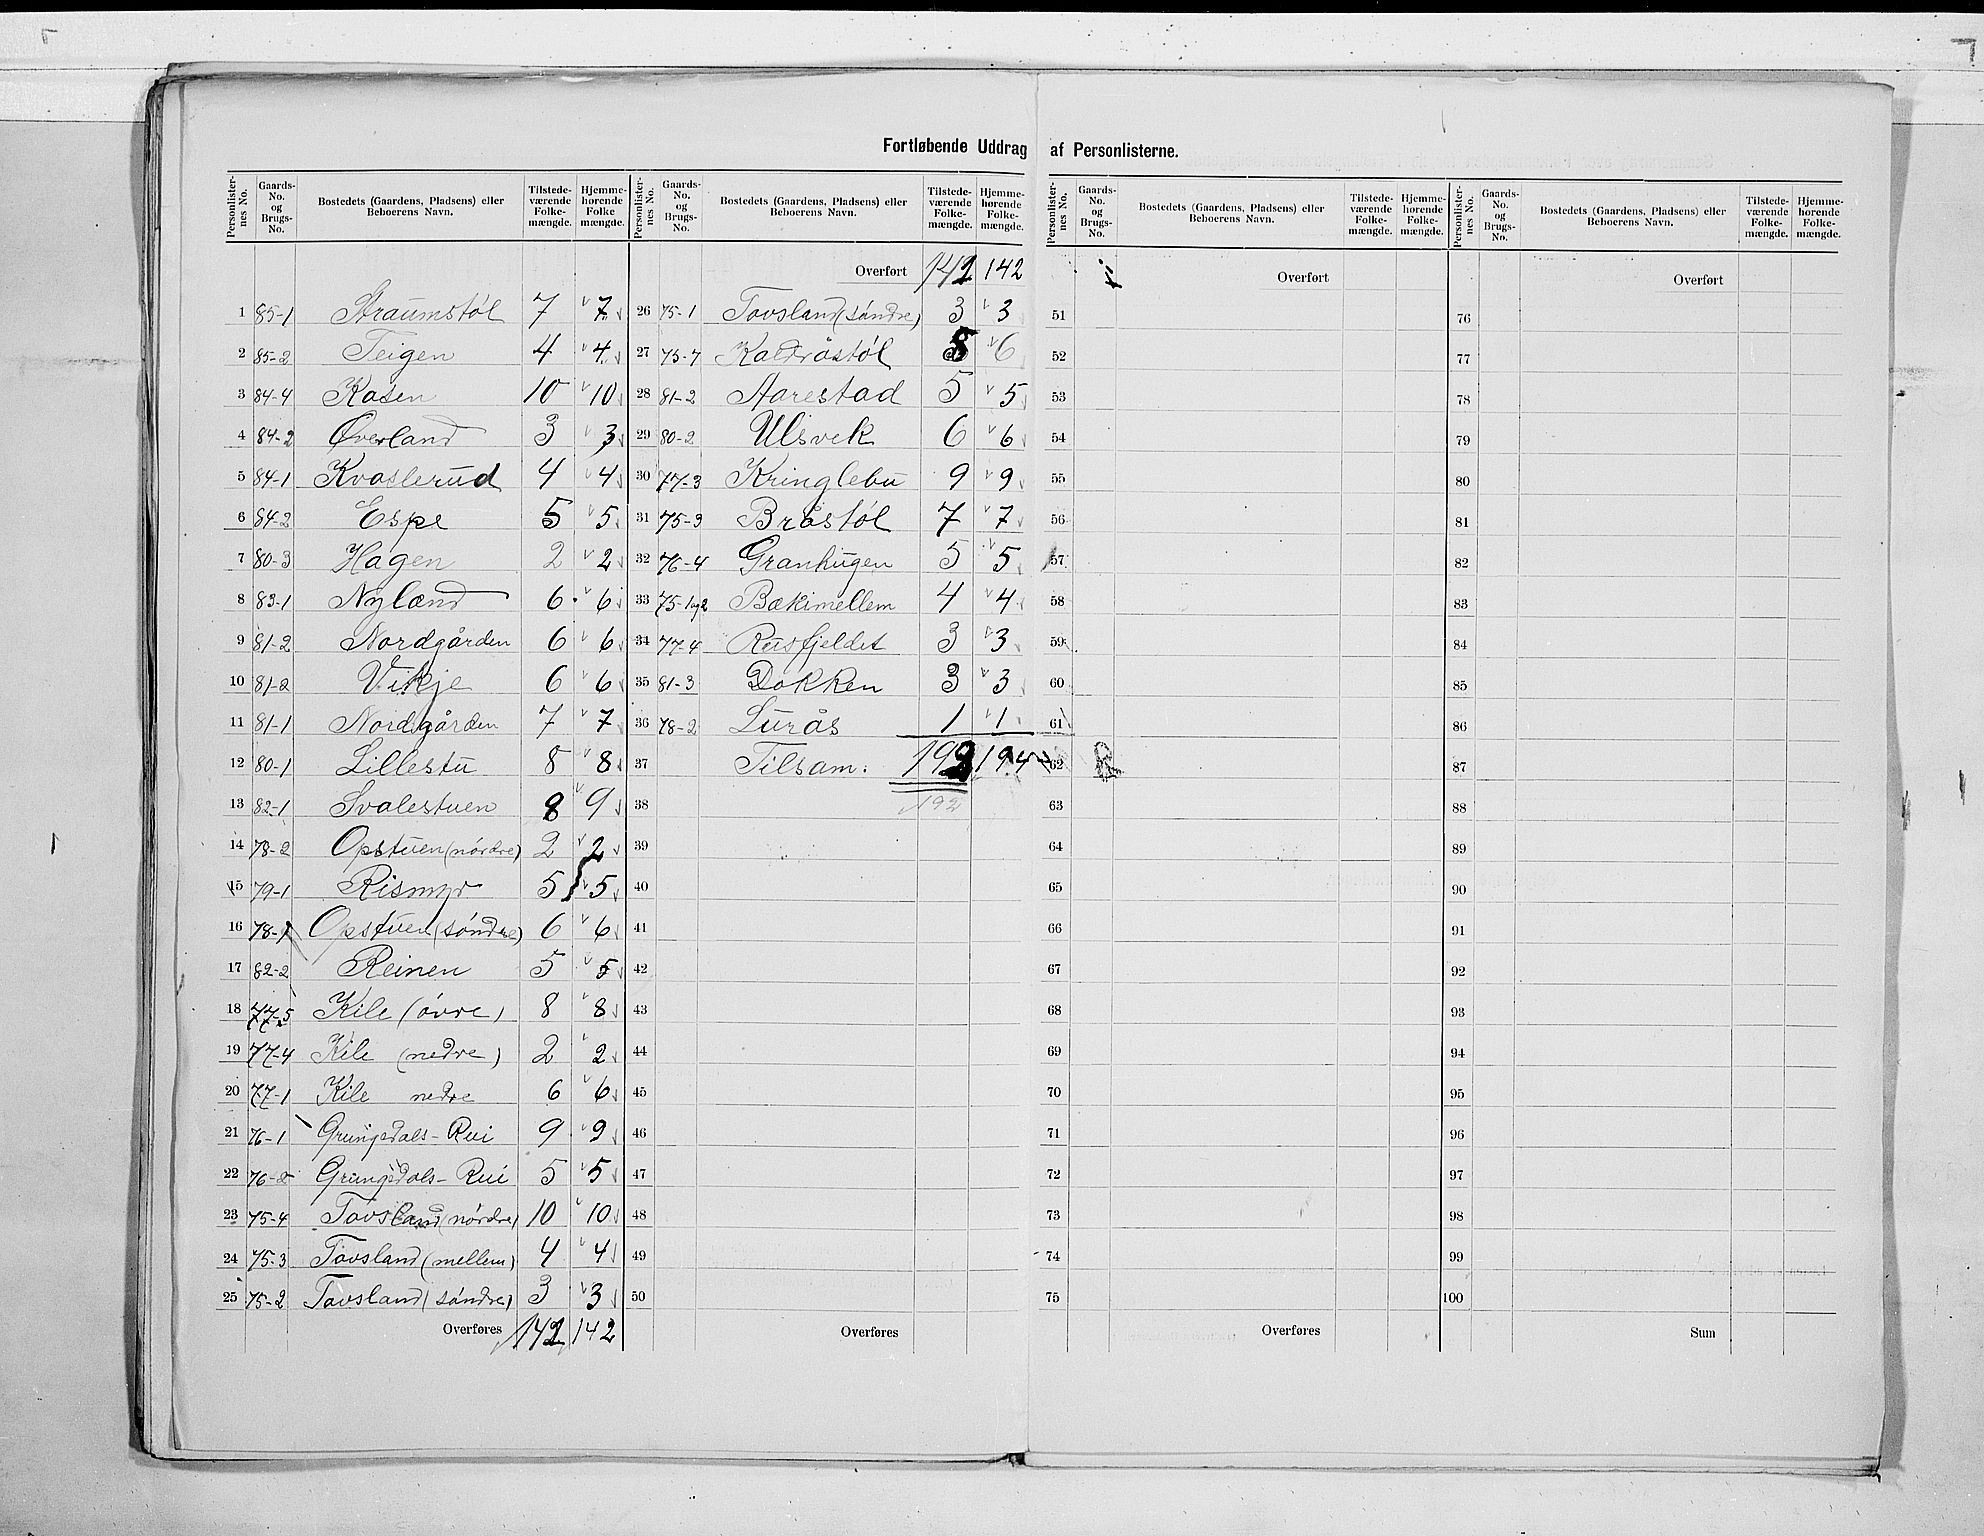 Fortløbende Uddrag af Personlisterne.
Personlister-nes No. | Gaards-No. og Brugs-No. | Bostedets (Gaardens, Pladsens) eller Beboerens Navn. | Tilstede-værende Folke-mængde. | Hjemme-hørende Folke mængde.
1 85-1 Straumstøl 7 7
2 85-2 Teigen 4 4
3 84-4 Kasen 10 10
4 84-2 Øverland 3 3
5 84-1 Kvaslerud 4 4
6 84-2 Espe 5 5
7 80-3 Hagen 2 2
8 83-1 Nyland 6 6
9 81-2 Nordgården 6 6
10 81-2 Vikje 6 6
11 81-1 Nordgården 7 7
12 80-1 Lillestu 8 8
13 82-1 Svalestuen 8 9
14 78-2 Opstuen (nórdre) 2 2
15 79-1 Rismyr 5 5
16 78-1 Opstuen (sóndre) 6 6
17 82-2 Reinen 5 5
18 77-5 Kile (óvre) 8 8
19 77-4 Kile (nedre) 2 2
20 77-1 Kile nedre 6 6
21 76-1 Grungedals-Rui 9 9
22 76-2 Grungedals-Rui 5 5
23 75-4 Tovsland (nórdre) 10 10
24 75-3 Tovsland (mellem) 4 4
25 75-2 Tovsland (sóndre) 3 3
Overføres 142 142
Personlister-nes No. | Gaards-No. og Brugs-No. | Bostedets (Gaardens, Pladsens) eller Beboerens Navn. | Tilstede-værende Folke-mængde. | Hjemme-hørende Folke-mængde.
Overført 142 142
26 75-1 Tovsland (sóndre) 3 3
27 75-7 Kaldråstøl 5 6
28 81-2 Aarestad 5 5
29 80-2 Ulsvek 6 6
30 77-3 Kringlebu 9 9
31 75-3 Bråstøl 7 7
32 76-4 Granhugen 5 5
33 75-1og2 Bækimellem 4 4
34 77-4 Rusfjeldet 3 3
35 81-3 Dokken 3 3
36 78-2 Lurås 1 1
37 Tilsam: 192 194
38 192
39
40
41
42
43
44
45
46
47
48
49
50
Overføres
Personlister-nes No. | Gaards-No. og Brugs-No. | Bostedets (Gaardens, Pladsens) eller Beboerens Navn. | Tilstede-værende Folke-mængde. | Hjemme-hørende Folke-mængde.
Overført
51
52
53
54
55
56
57
58
59
60
61
62
63
64
65
66
67
68
69
70
71
72
73
74
75
Overføres
Personlister-nes No. | Gaards-No. og Brugs-No. | Bostedets (Gaardens, Pladsens) eller Beboerens Navn. | Tilstede-værende Folke-mængde. | Hjemme-hørende Folke-mængde.
Overført
76
77
78
79
80
81
82
83
84
85
86
87
88
89
90
91
92
93
94
95
96
97
98
99
100
Sum